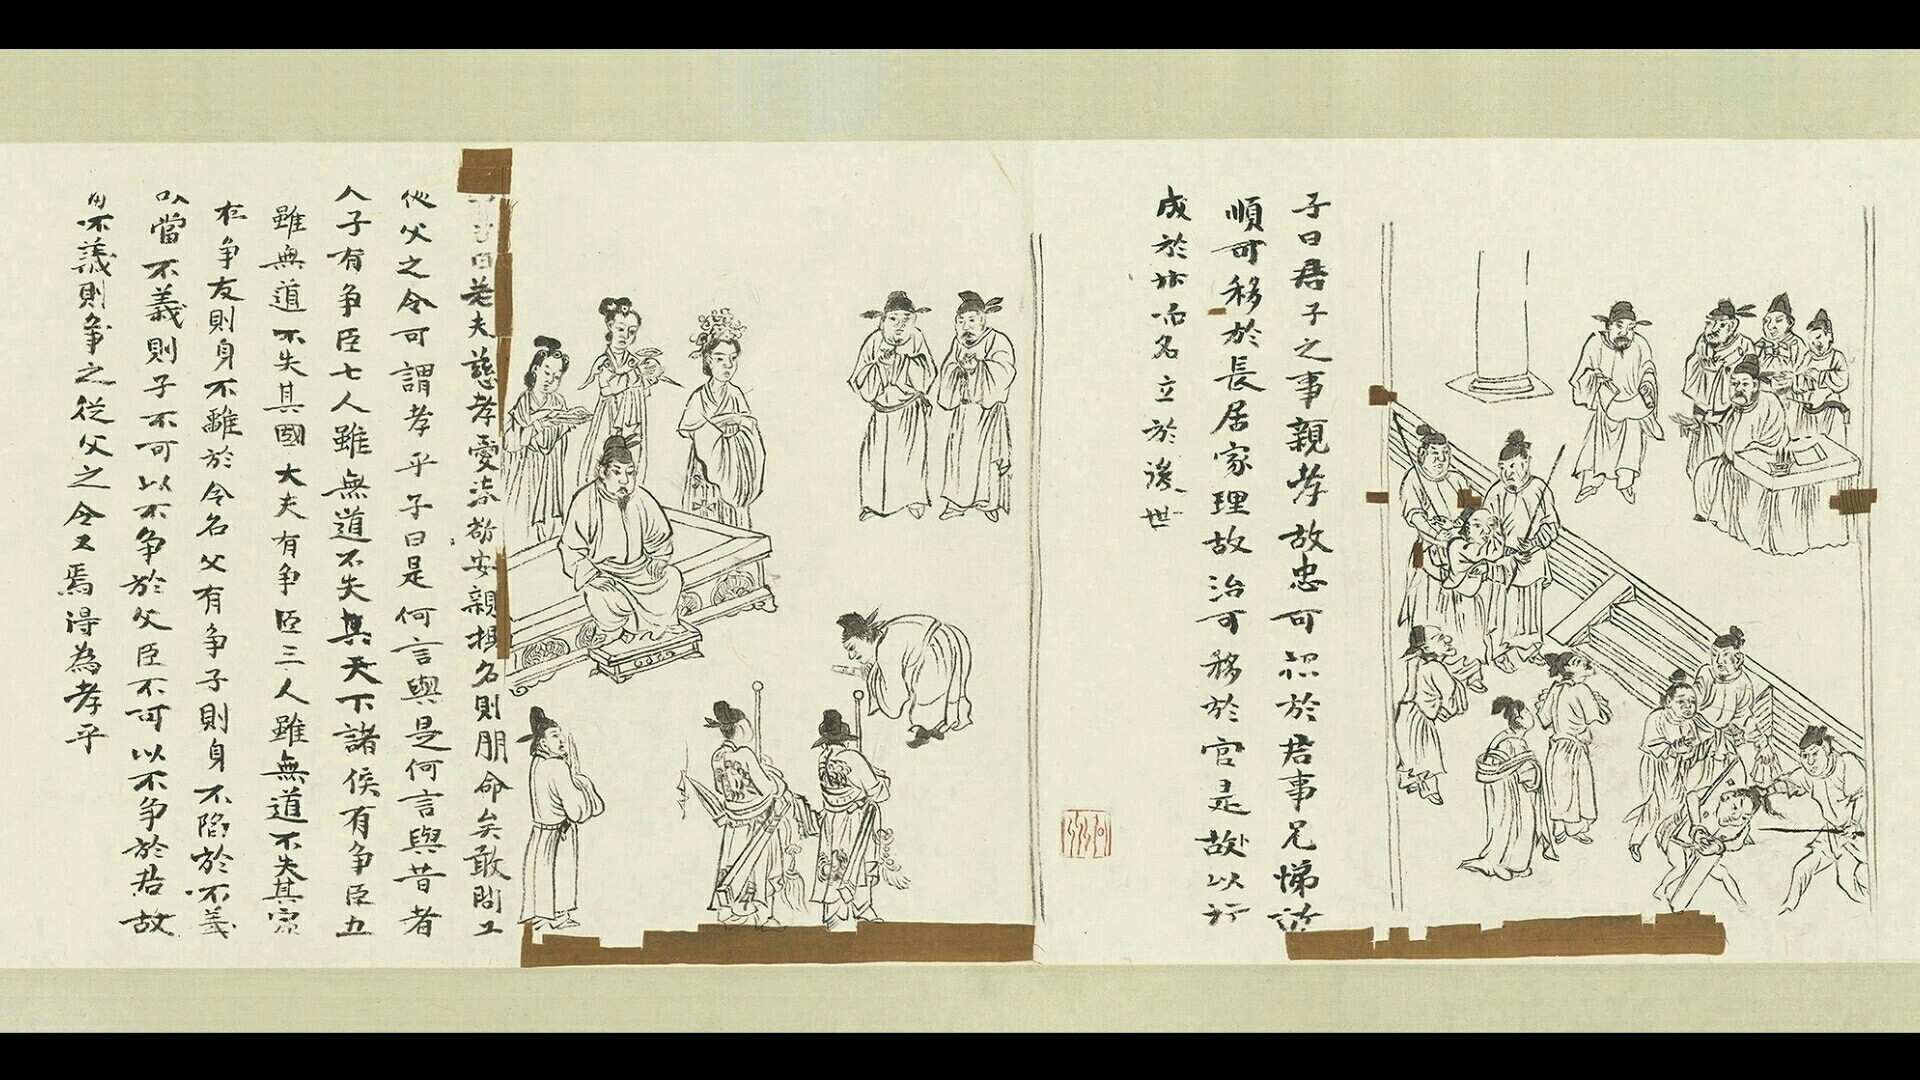 子曰君子之事親孝故忠可移於君事兄悌故
順可移於長居家理故治可移於官是故以行
成於內而名立於後世
子曰若夫慈孝愛恭敬安親揚名則聞命矣敢問子
從父之令可謂孝乎子曰是何言與是何言與昔者
天子有爭臣七人雖無道不失其天下諸侯有爭臣五
雖無道不失其國大夫有爭臣三人雖無道不失其家
有爭友則身不離於令名父有爭子則身不陷於不義
以當不義則子不可以不爭於父臣不可以不爭於君故
當不義則爭之從父之令又焉得為孝乎